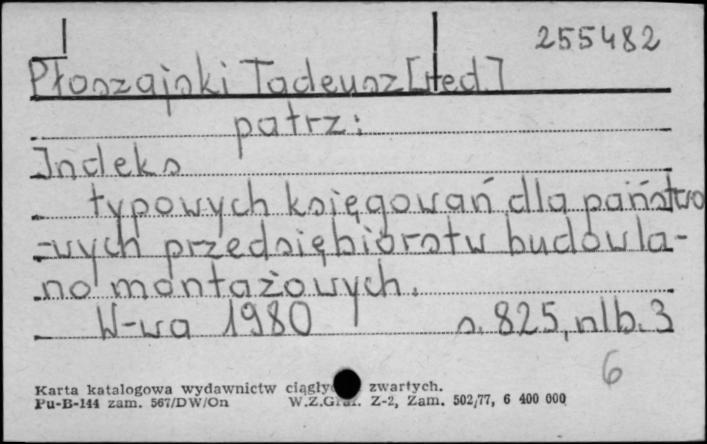 255482
Płoszajski Tadeusz [red.]
patrz:
Indeks
typowych księgowań dla państwo
-wych przedsiębiorstw budowla-
no montażowych.
W-wa 1980 s. 825, nlb. 3
6
Karta katalogowa wydawnictw zwartych.
Pu-B-144 zam. 567/DW/On W.Z.Graf. Z-2, Zam. 502/77, 6 400 000